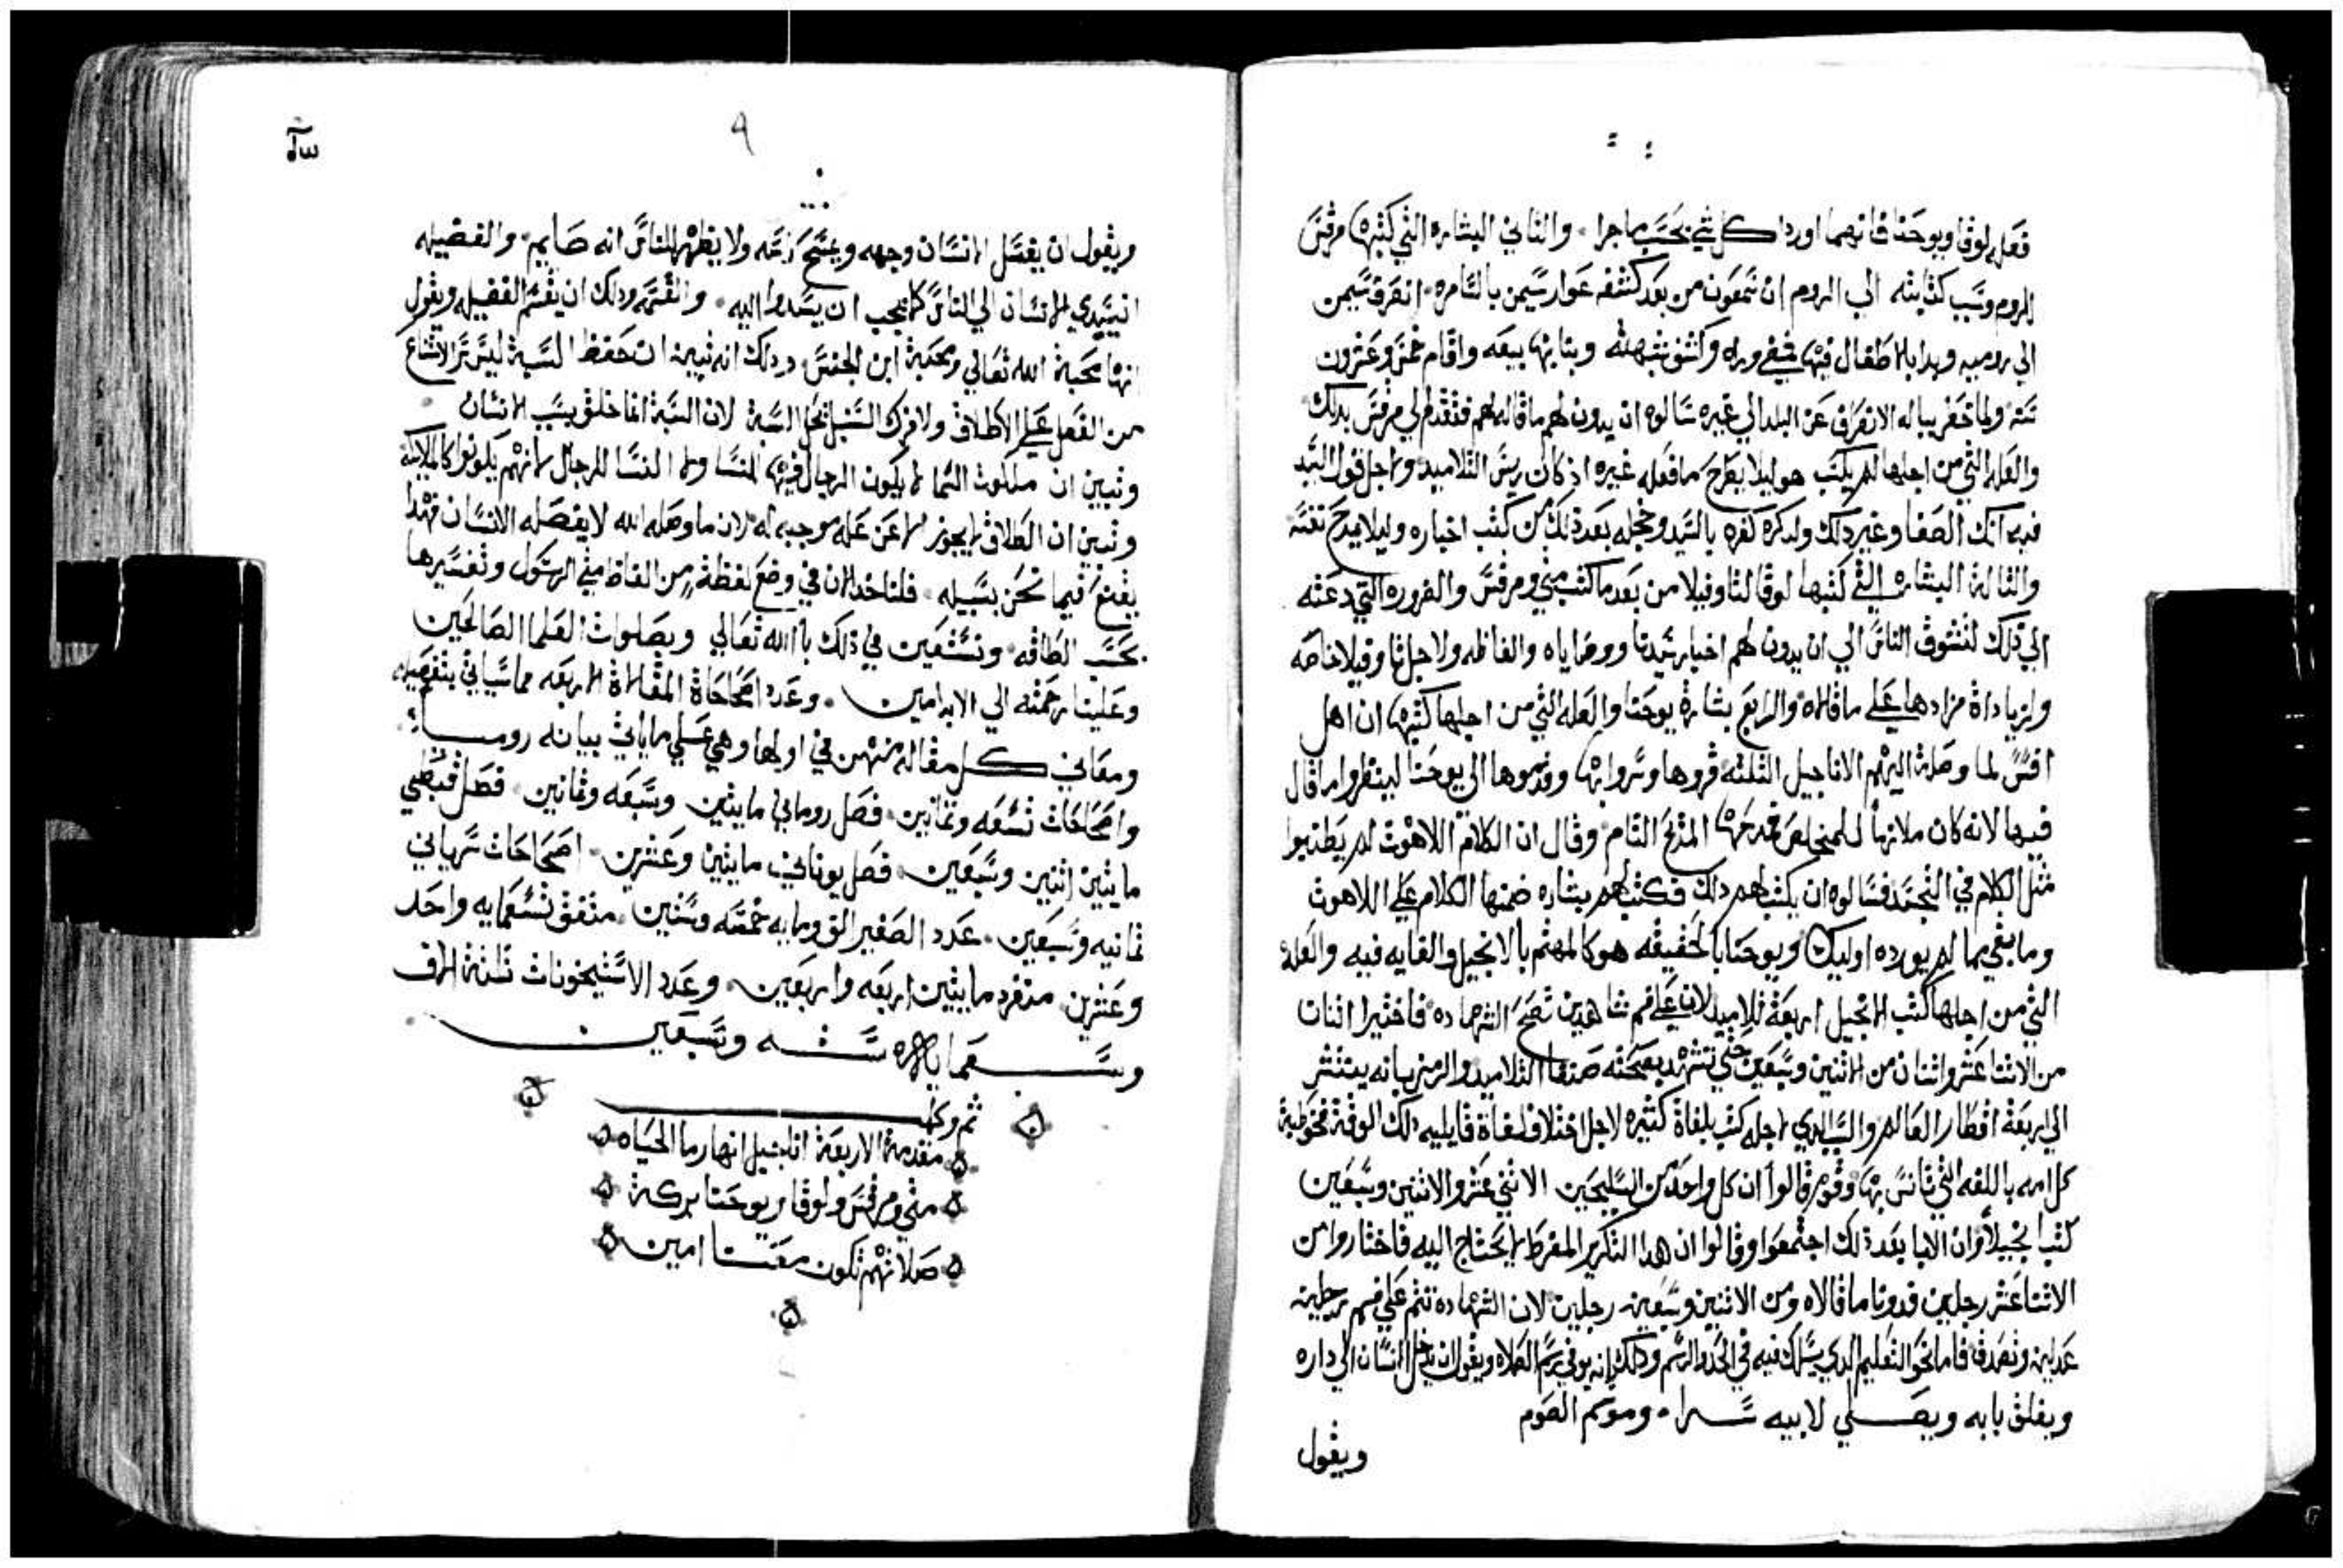 فعله لوقا ويوحنا فانهما اوردا كل شي بحسب ماجرا . والثاني البشاره التي كتبها مرقس
الروم وسبب كتابته الي الروم ان شمعون من بعد كشفه عوار سيمن بالسامره انصرف سيمن
الي روميه وبدا بالاطفال فيها وكشف شبهته وبنا بها بيعه واقام خمس وعشرون
سنه ولما تحفز بباله الانصراف عن البلد الي غيره سالوه ان يدون لهم ما قاله لهم فتقدم الي مرقس بدلك
والعله التي من اجلها لم يكتب هو ليلا يطرح ما فعله غيره اذ كان ريس التلاميد ولاجل قول السيد
فيه انك الصفا وغير دلك ولدكره كفره بالسيد وخجله بعد ذلك من كتب اخباره وليلا يمدح نفسه
والثالثة البشاره التي كتبها لوقا لثاوفيلا من بعد ما كتب متي ومرقس والضروره التي دعته
الي ذلك لتشوف الناس الي ان يدون لهم اخبار سيدنا ووصاياه والفاظه ولاجل ثاوفيلا خاصه
ولزياداة زادها علي ما قالاه والرابع بشارة يوحنا والعله التي من اجلها كتبها ان اهل
افسس لما وصلة اليهم الاناجيل الثلثه قروها وسروا بها وقدموها الي يوحنا لينظروا ما قال
فيها لانه كان ملازما للمخلص فمدحها المدح التام وقال ان الكلام اللاهوت لم يطنبوا
مثل الكلام في التجسد فسالوه ان يكتب لهم دلك فكتب لهم بشاره ضمنها الكلام علي اللاهوت
وما بقي مما لم يورده اوليك ويوحنا بالحقيقه هو كالمهتم بالانجيل والغايه فيه والعله
التي من اجلها كتب الانجيل اربعة تلاميد لان علي فم شاهدين تصح الشهاده فاختيرا اثنان
من الاثنا عشر واثنان من الاثنين وسبعين حتي تشهد بصحته صنفا التلاميد والرمز بانه ينتشر
الي اربعة اقطار العالم والسبب الدي لاجله كتب بلغاة كثيره لاجل اختلاف لغاة قابليه دلك الوقت
كل امه باللغه التي تانس بها وقوم قالوا ان كل واحد من السليحين الاثني عشر والاثنين وسبعين
كتب انجيلا وان الابا بعد ذلك اجتمعوا وقالوا ان هدا التكرير المفرط لا يحتاج اليه فاختاروا من
الاثنا عشر رجلين فدونا ما قالاه ومن الاثنين وسبعين رجلين لان الشهاده تتم علي فم رجلين
عدلين وتصدق فاما نحو التعليم الدي يسلك فيه في الحد والرسم ودلك انه يوفي رسم الصلاه ويقول ان يدخل الانسان الي داره
ويغلق بابه ويصلي لابيه سرا . وموسم الصوم
ويقول
٩
ويقول ان يغسل الانسان وجهه ويمسح راسه ولا يظهر للناس انه صايم والفضيله
ان يسدي الانسان الي الناس كما يحب ان يسدوا اليه . والقسمه ودلك ان يقسم الفضيله ويقول
انها محبة الله تعالي ومحبة ابن الجنس ودلك انه تبين ان حفظ السبة ليس الامتناع
من الفعل علي الاطلاق ولا فرك السنبل تحل السبة لان السبة انما خلق بسبب الانسان
وتبين ان ملكوت السما لا يكون الرجال فيها للنسا ولا النسا للرجال لانهم يكونوا كالملايكة
وتبين ان الطلاق لا يجوز الا عن عله موجبه له لان ما وصله الله لا يفصله الانسان فهدا
يقنع فيما نحن بسبيله . فلناخد الان في وضع لفظة من الفاظ متي الرسول وتفسيرها
بحسب الطاقه ونستعين في ذلك بالله تعالي وبصلوات العلما الصالحين
وعلينا رحمته الي الابد امين . وعدد اصحاحاة المقالاة الاربعه مما سياتي بتفصيله
ومعاني كل مقاله منهن في اولها وهي علي ما ياتي بيانه روسا
واصحاحات تسعه وثمانين . فصل روماني مايتين وسبعه وثمانين . فصل قبطي
مايتين اثنين وسبعين . فصل يوناني مايتين وعشرين . اصحاحات سرياني
ثمانيه وسبعين . عدد الصغير الف ومايه خمسه وستين . متفق تسعمايه واحد
وعشرين . منفرد مايتين اربعه واربعين . وعدد الاستيخونات ثلثة الاف
وسبعمايه سته وسبعين
ثم وكمل
مقدمة الاربعة اناجيل انهار ما الحياه
متي ومرقس ولوقا ويوحنا بركة
صلاتهم تكون معنا امين